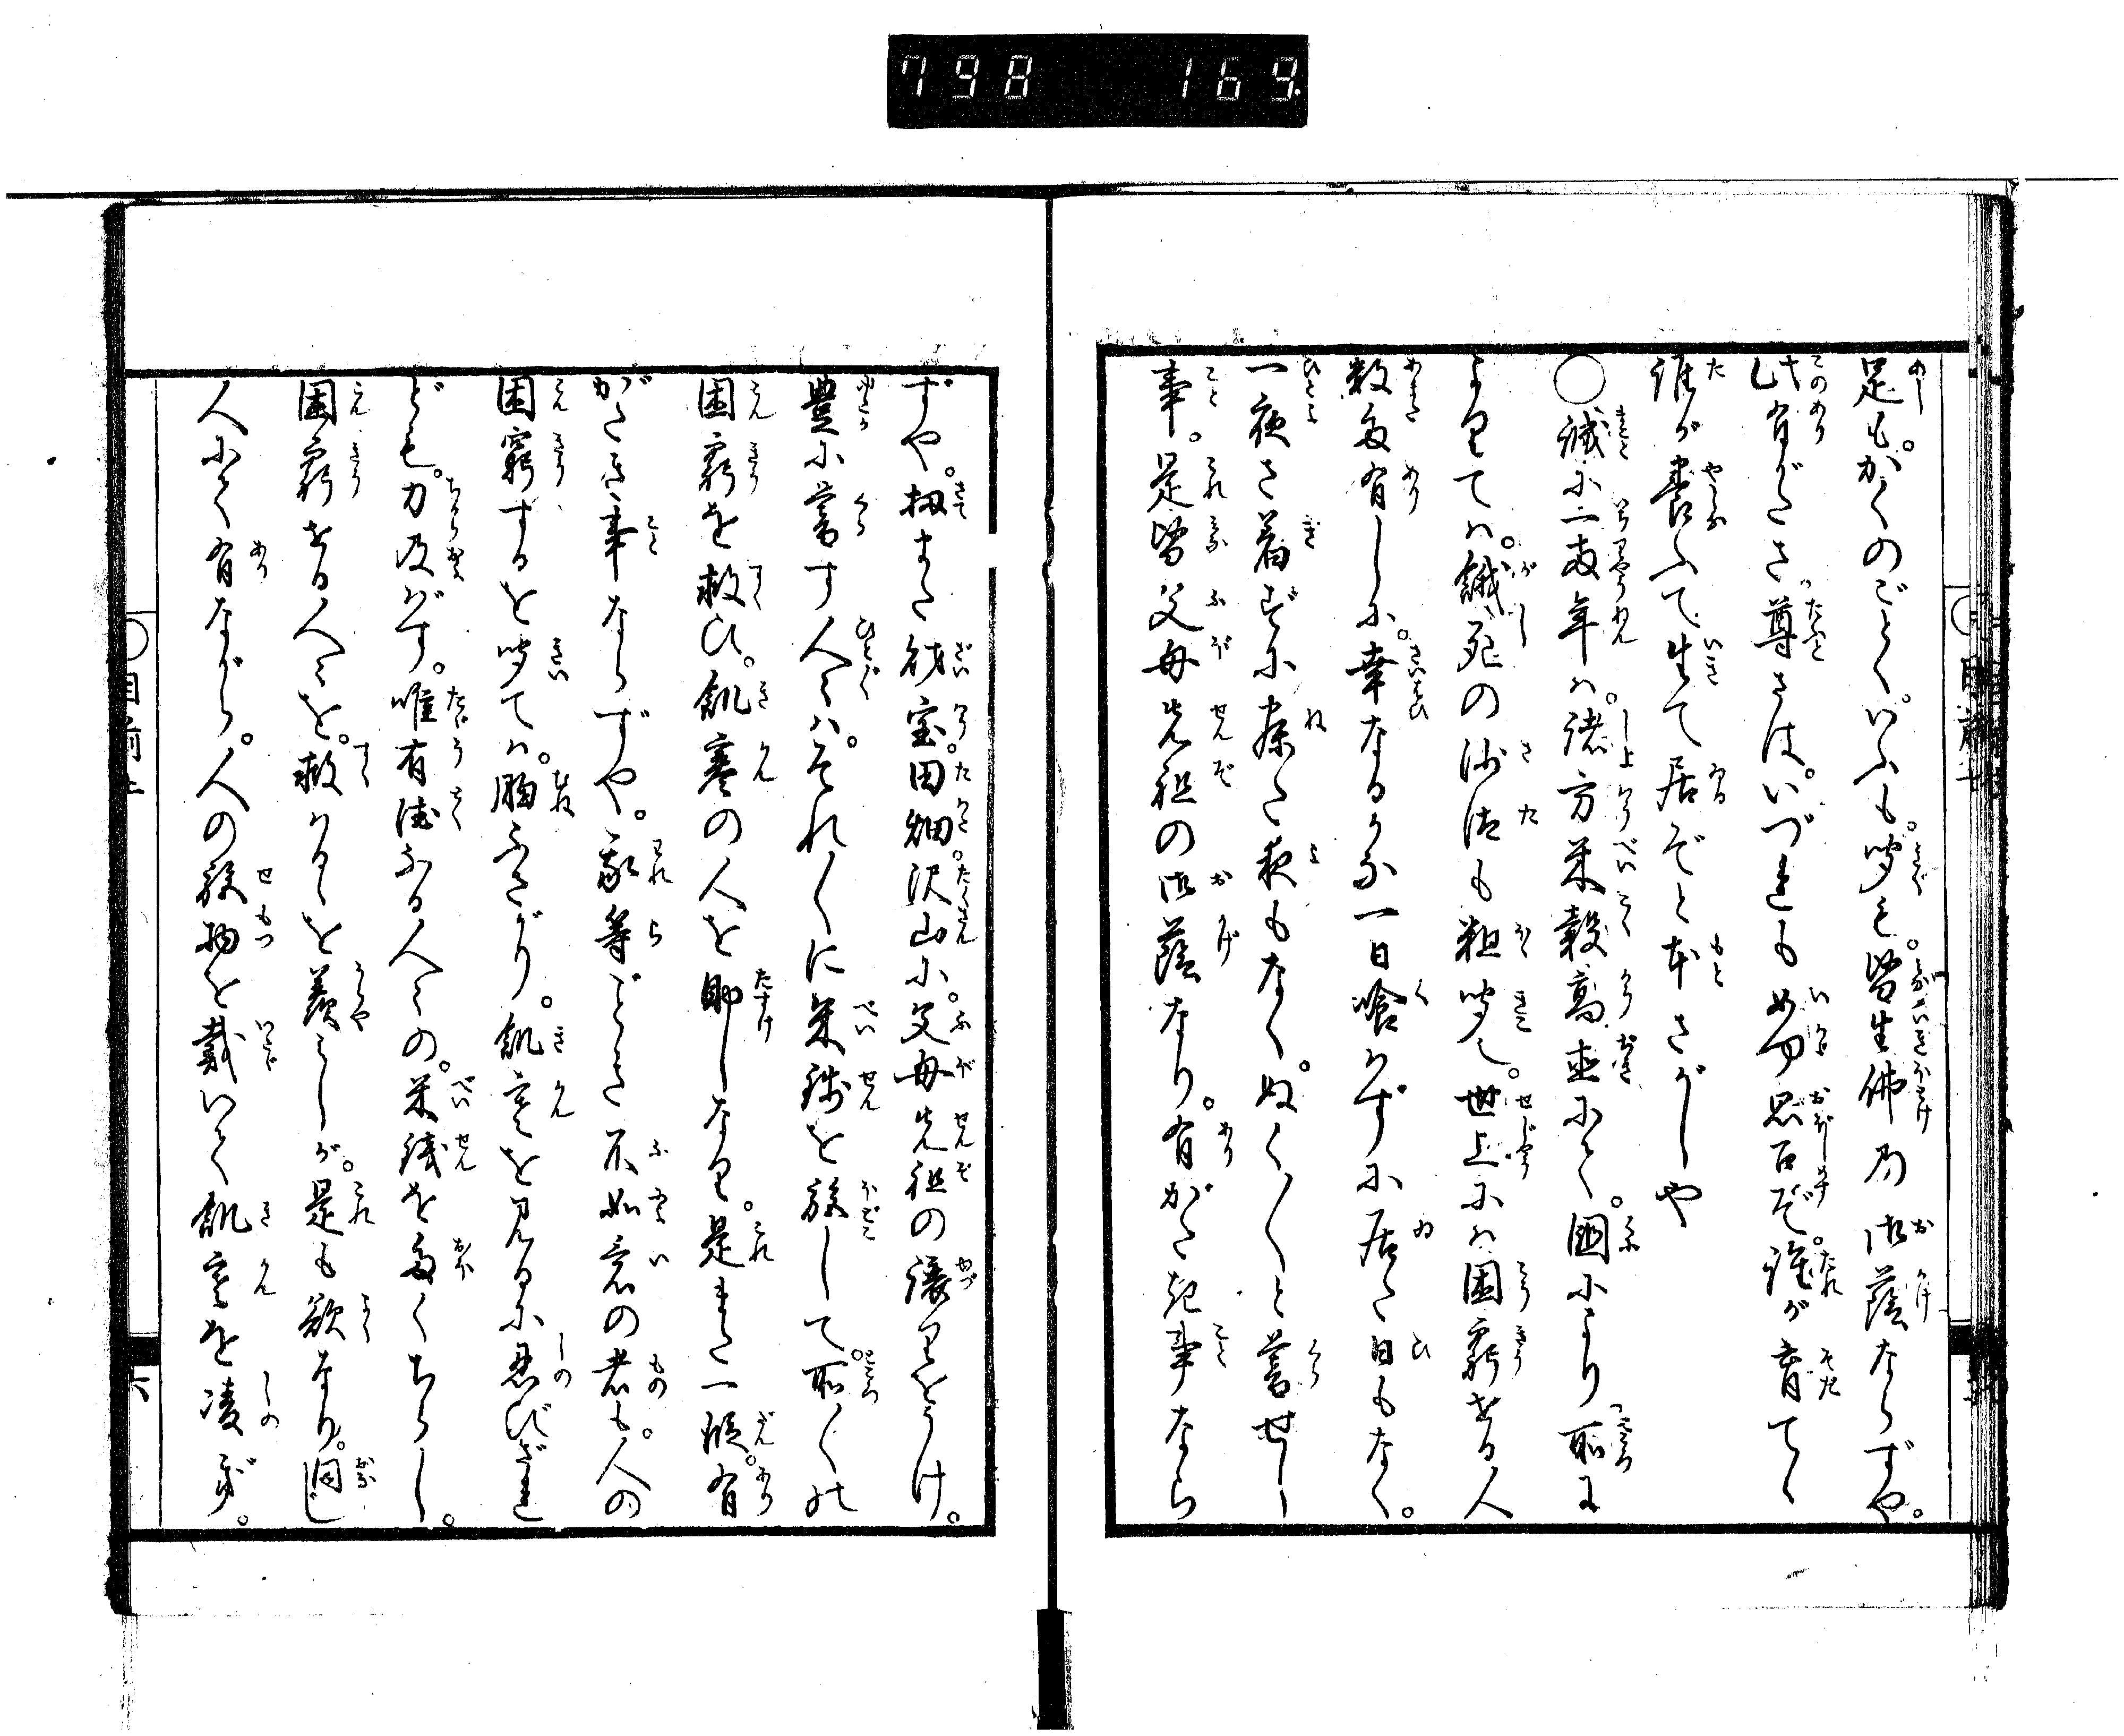 798 169
足も。かくのごとく。いふも。聞も。皆生佛乃御蔭ならずや。
此有がたさ尊さは。いづれも如何思召ぞ。誰が育てゝ
誰が養ふて生て居ぞと本さがしや
○誠に一両年ハ。諸方米穀高直にて。国により所に
よりてハ。餓死の沙汰も粗聞ヘ。世上にハ困窮せる人
数多有しに。幸なるかな一日喰ハずに居た日もなく。
一夜さ着ずに寐た夜もなく。ぬく〳〵と暮せし
事。是皆父母先祖の御蔭なり。有がたき事なら
ずや。扨また財宝。田畑。沢山に。父母先祖の譲りをうけ。
豊に暮す人々ハ。それ〳〵に米銭を施して。所〳〵の
困窮を救ひ。飢寒の人を助しなり。是また一段。有
がたき事ならずや。我等ごとき不如意の者も。人の
困窮するを聞てハ。胸ふさがり。飢寒を見るに忍びざれ
ども。力及バず。唯有徳なる人々の。米銭を多くちらし。
困窮せる人々を。救ハるゝを羨しが。是も欲なり。同じ
人にて有ながら。人の施物を戴いて飢寒を凌ぎ。
○目前上
六